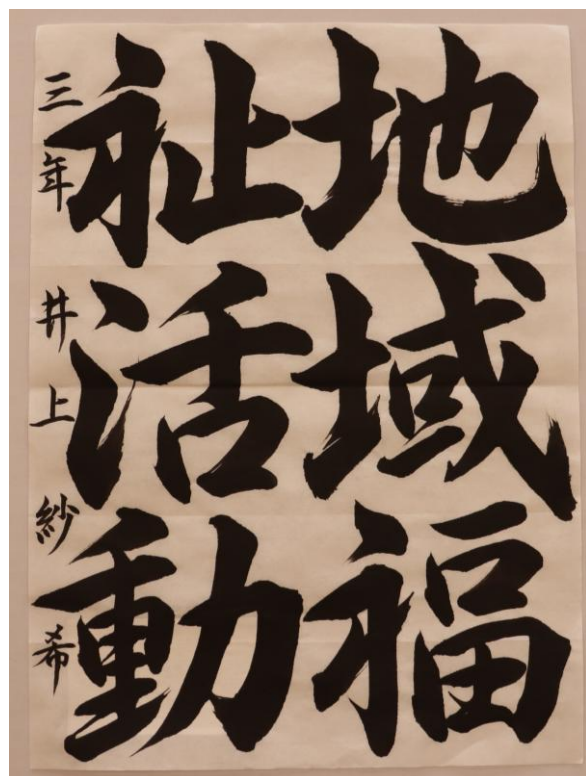 地域福
祉活動
三年 井上紗希